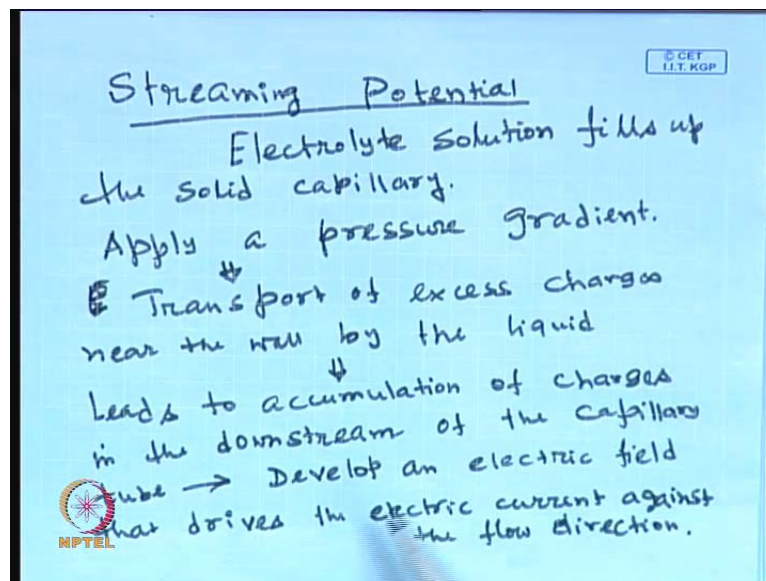 © CET
I.I.T. KGP
Streaming Potential
Electrolyte solution fills up
the solid capillary.
Apply a pressure gradient.
⇓
Transport of excess charges
near the wall by the liquid
⇓
Leads to accumulation of charges
in the downstream of the capillary
tube → Develop an electric field
that drives the electric current against
the flow direction.
NPTEL